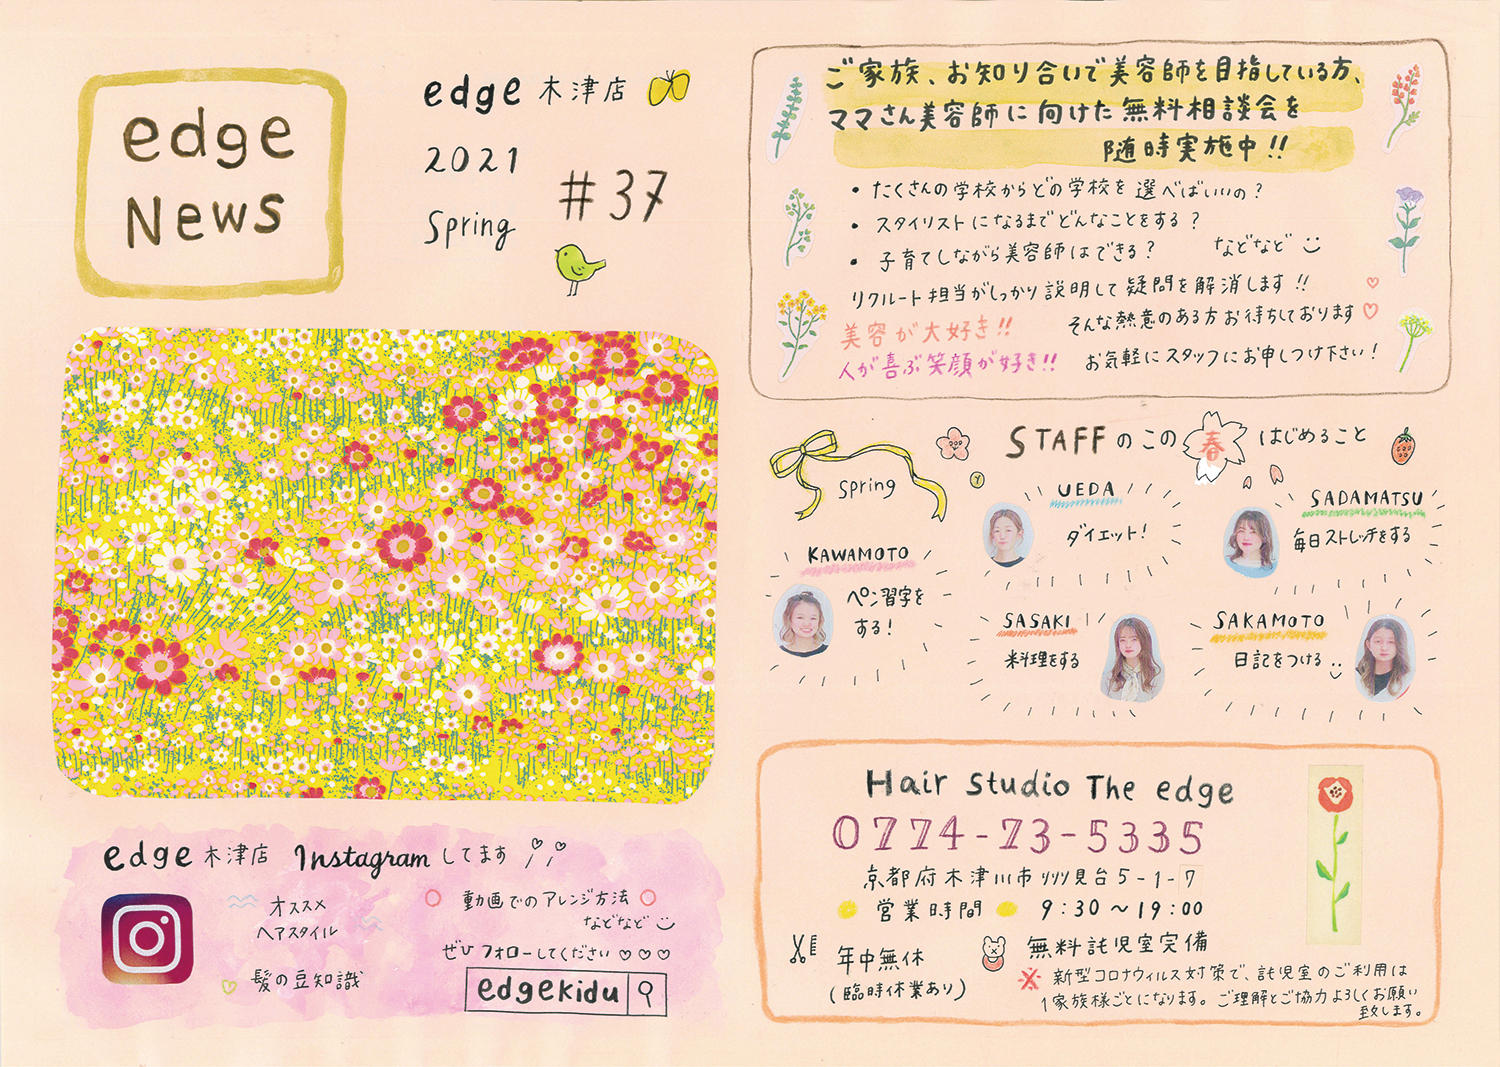 edge
News
edge 木津店
2021
Spring
#37
edge 木津店 Instagram してます
オススメ
ヘアスタイル
髪の豆知識
動画でのアレンジ方法
などなど
ぜひフォローしてください♡♡♡
edgekidu
ご家族、お知り合いで美容師を目指している方、
ママさん美容師に向けた無料相談会を
随時実施中!!
・たくさんの学校からどの学校を選べばいいの?
・スタイリストになるまでどんなことをする?
・子育てしながら美容師はできる? などなど
リクルート担当がしっかり説明して疑問を解消します!!
美容が大好き!! そんな熱意のある方お待ちしております
人が喜ぶ笑顔が好き!! お気軽にスタッフにお申しつけ下さい!
spring
STAFFのこの春はじめること
KAWAMOTO
ペン習字を
する!
UEDA
ダイエット!
SADAMATSU
毎日ストレッチをする
SASAKI
料理をする
SAKAMOTO
日記をつける
Hair Studio The edge
0774-73-5335
京都府木津川市州見台5-1-7
営業時間 9:30~19:00
年中無休
(臨時休業あり)
無料託児室完備
※新型コロナウィルス対策で、託児室のご利用は
1家族様ごとになります。ご理解とご協力よろしくお願い
致します。